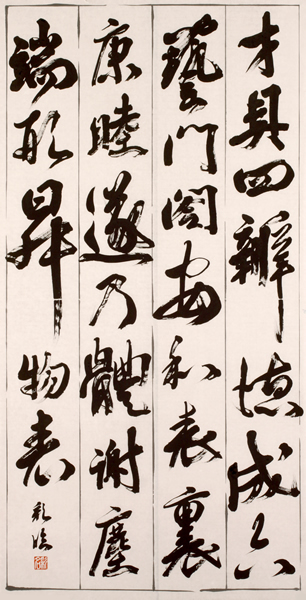 才具四辯德成六
藝門閤安和表裏
康睦遂乃體謝塵
端形昇物表